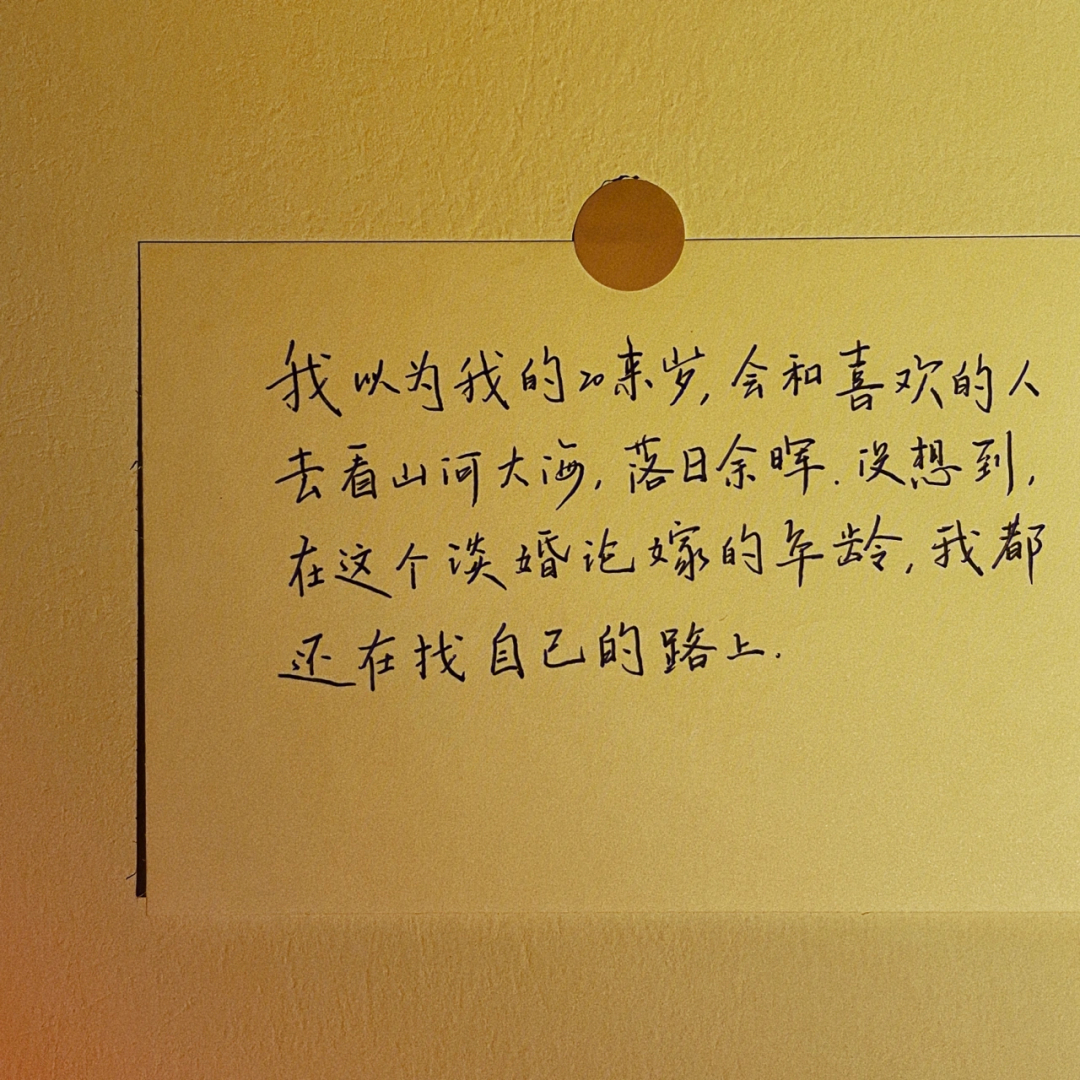 我以为我的20来岁,会和喜欢的人
去看山河大海,落日余晖.没想到,
在这个谈婚论嫁的年龄,我都
还在找自己的路上.